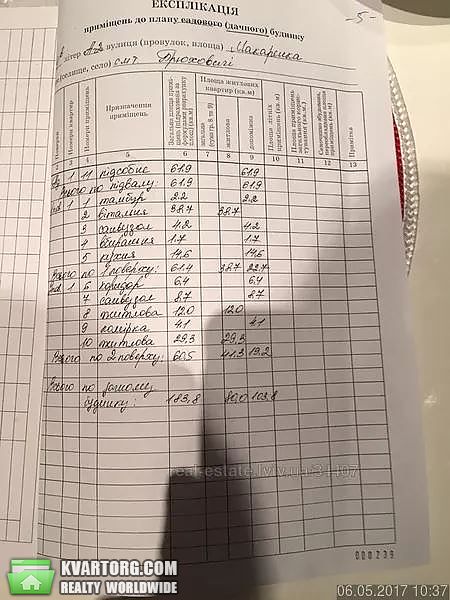 ЕКСПЛІКАЦІЯ
-5-
приміщень до плану садового (дачного) будинку
літер А-2 вулиця (провулок, площа) Макаренка
(селище, село) смт Брюховичі
Номери квартир
Номери приміщень
Призначення приміщень
Площа житлових квартир (кв.м)
житлова
допоміжна
Примітка
3 4 5 6 7 8 9 10 11 12 13
1 11 підсобне 61.9 61.9
Всього по підвалу: 61.9 61.9
1 1 тамбур 2.2 2.2
2 вітальня 38.7 38.7
3 санвузол 4.2 4.2
4 вбиральня 1.7 1.7
5 кухня 14.6 14.6
Всього по 1 поверху: 61.4 38.7 22.7
1 6 коридор 6.4 6.4
7 санвузол 8.7 8.7
8 житлова 12.0 12.0
9 комірка 4.1 4.1
10 житлова 29.3 29.3
Всього по 2 поверху: 60.5 41.3 19.2
Всього по дачному
будинку: 183.8 80.0 103.8
real-estate.lviv.ua-31107
000239
KVARTORG.COM
REALTY WORLDWIDE
06.05.2017 10:37